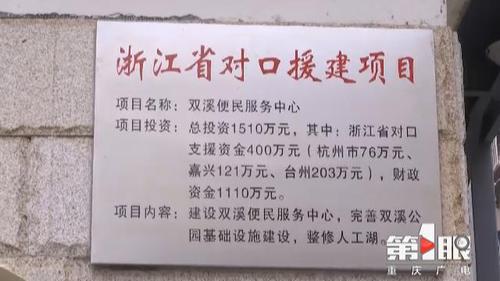 浙江省对口援建项目
项目名称：双溪便民服务中心
项目投资：总投资1510万元，其中：浙江省对口
支援资金400万元（杭州市76万元、
嘉兴121万元、台州203万元），财政
资金1110万元。
项目内容：建设双溪便民服务中心，完善双溪公
园基础设施建设，整修人工湖。
第1眼
重庆广电